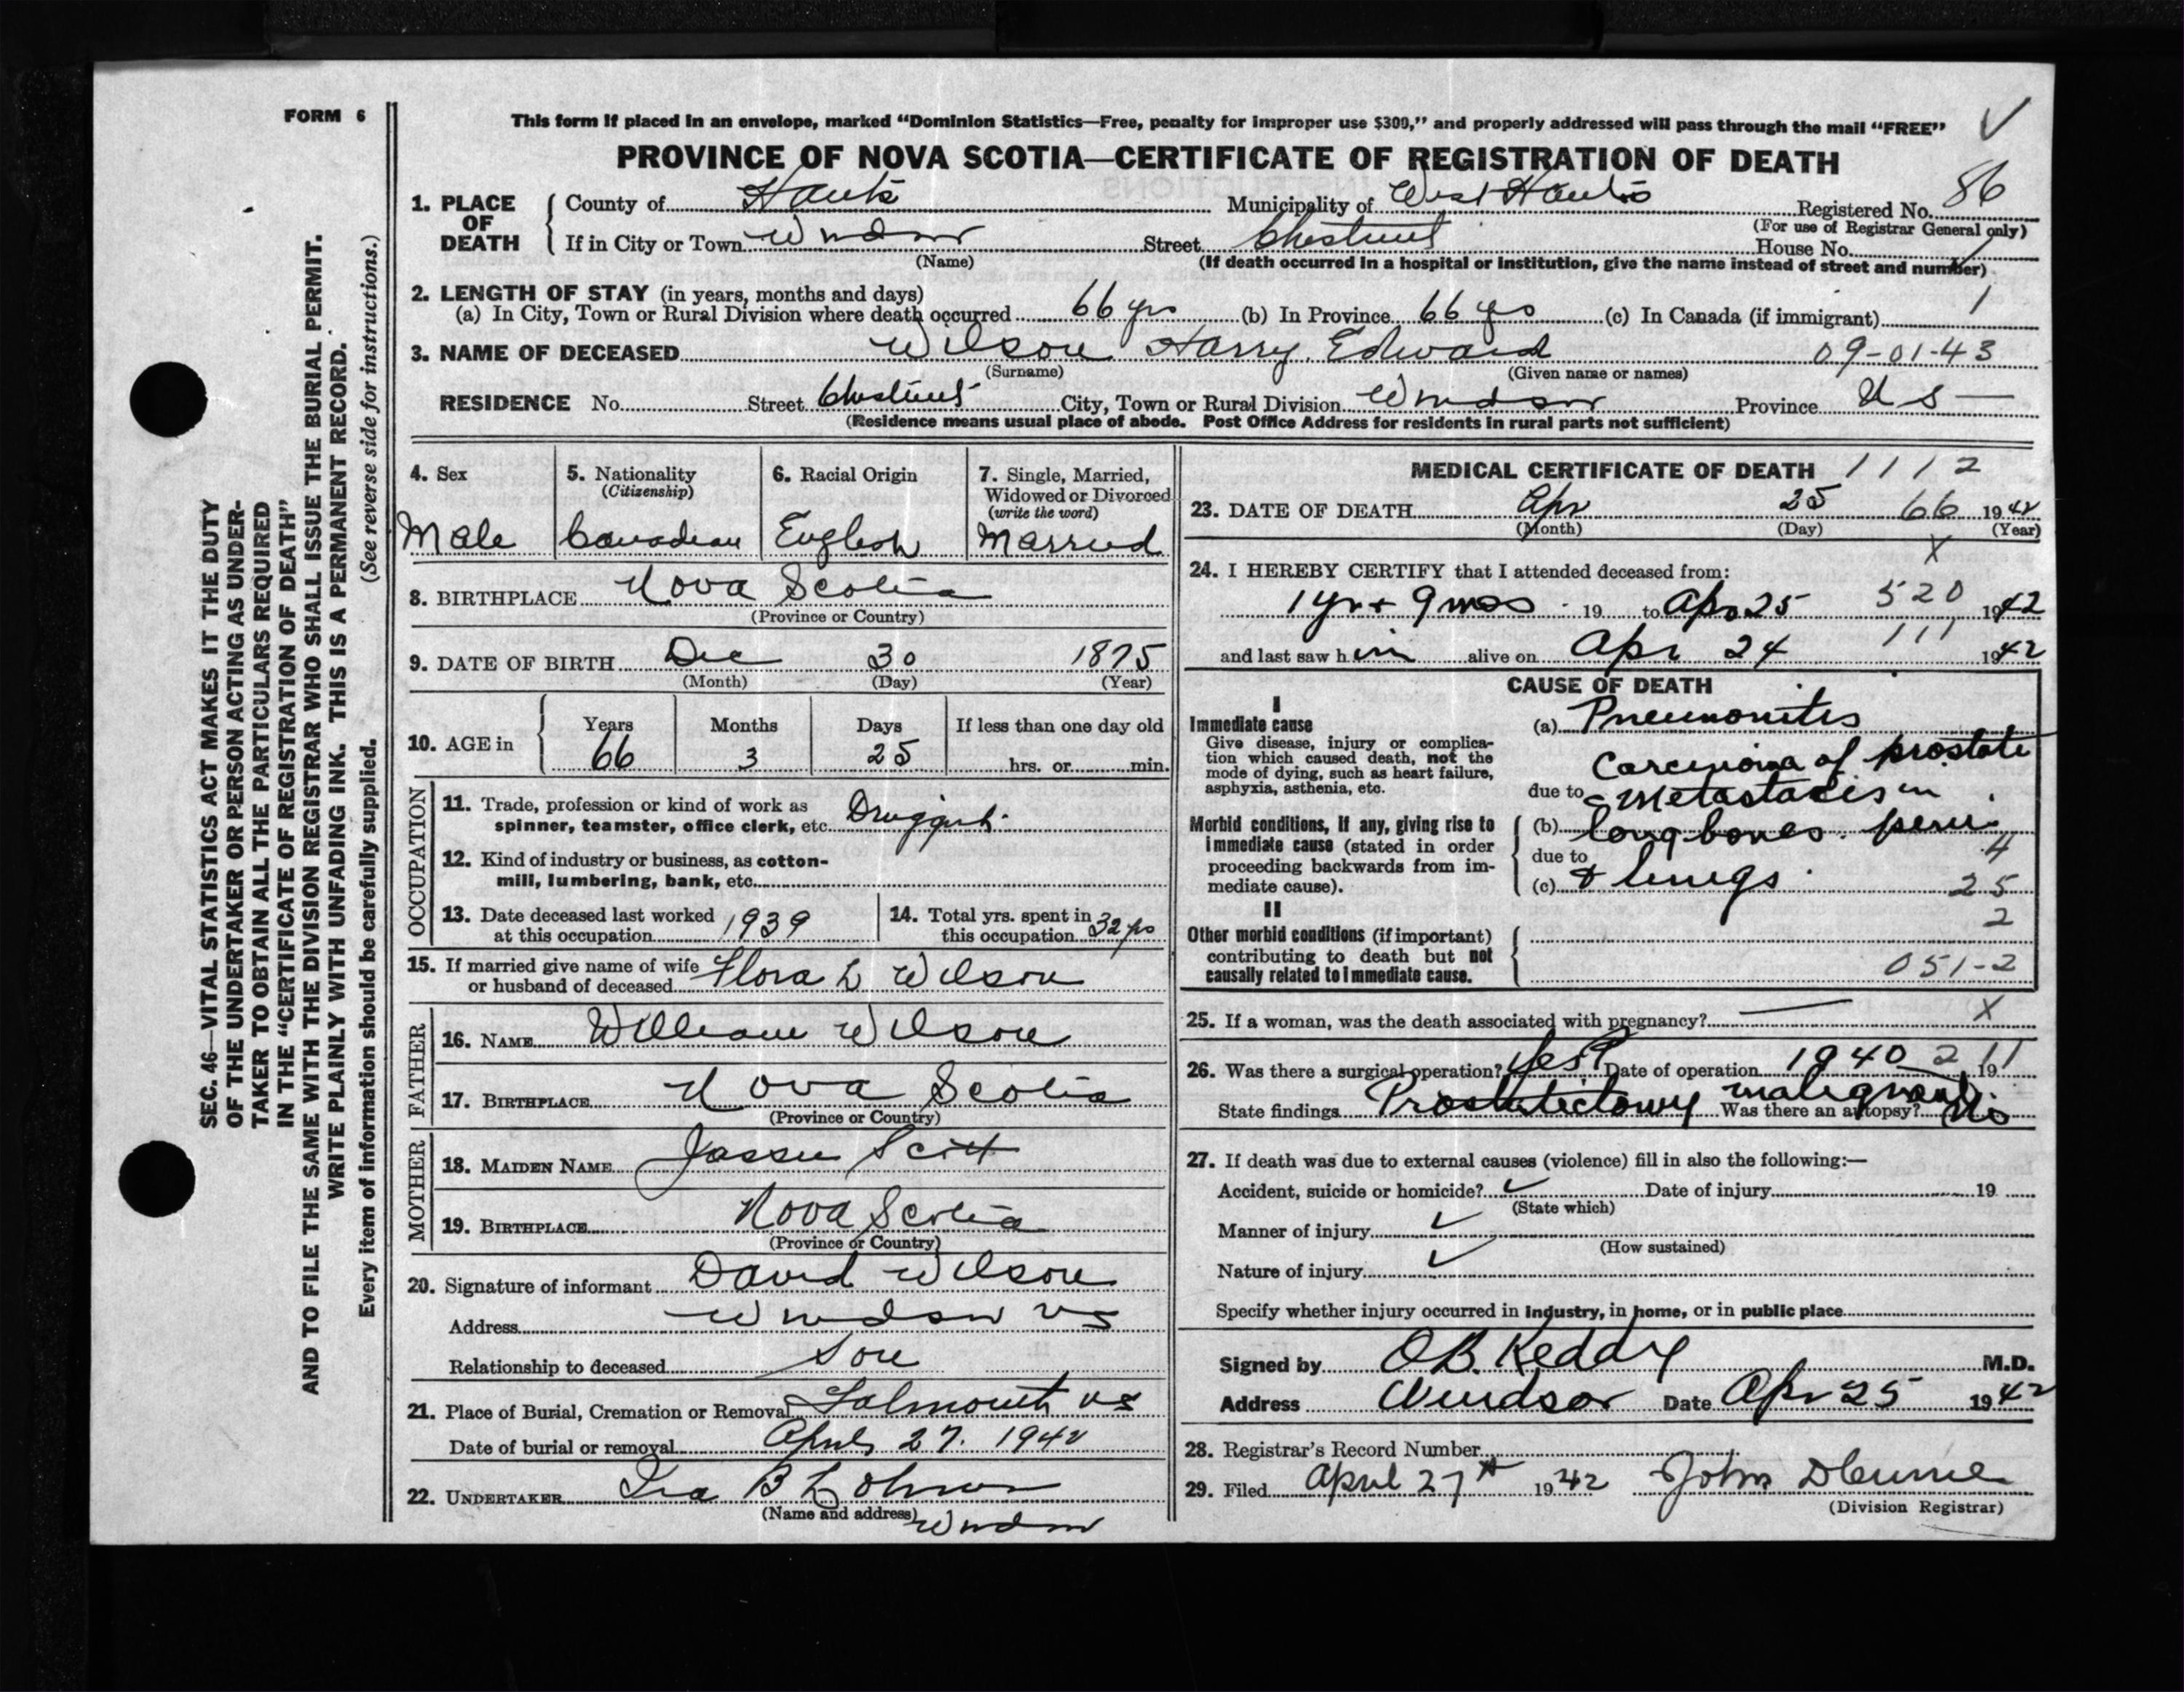 FORM 6
This form if placed in an envelope, marked “Dominion Statistics—Free, penalty for improper use $300,” and properly addressed will pass through the mail “FREE”
PROVINCE OF NOVA SCOTIA—CERTIFICATE OF REGISTRATION OF DEATH
1. PLACE OF DEATH
County of Hants Municipality of West Hants Registered No. 86
(For use of Registrar General only)
If in City or Town Windsor Street Chestnut House No.
(Name) (If death occurred in a hospital or institution, give the name instead of street and number)
2. LENGTH OF STAY (in years, months and days)
(a) In City, Town or Rural Division where death occurred 66 yrs (b) In Province 66 yrs (c) In Canada (if immigrant) 1
3. NAME OF DECEASED Wilson Harry Edward 09-01-43
(Surname) (Given name or names)
RESIDENCE No. Street Chestnut City, Town or Rural Division Windsor Province NS
(Residence means usual place of abode. Post Office Address for residents in rural parts not sufficient)
4. Sex
Male
5. Nationality
(Citizenship)
Canadian
6. Racial Origin
English
7. Single, Married,
Widowed or Divorced
(write the word)
Married
8. BIRTHPLACE Nova Scotia
(Province or Country)
9. DATE OF BIRTH Dec 30 1875
(Month) (Day) (Year)
10. AGE in
Years Months Days If less than one day old
66 3 25 hrs. or min.
OCCUPATION
11. Trade, profession or kind of work as
spinner, teamster, office clerk, etc. Druggist
12. Kind of industry or business, as cotton-
mill, lumbering, bank, etc.
13. Date deceased last worked
at this occupation 1939
14. Total yrs. spent in
this occupation 32 yrs
15. If married give name of wife
or husband of deceased Flora L Wilson
FATHER
16. NAME William Wilson
17. BIRTHPLACE Nova Scotia
(Province or Country)
MOTHER
18. MAIDEN NAME Scott
19. BIRTHPLACE Nova Scotia
(Province or Country)
20. Signature of informant David Wilson
Address Windsor NS
Relationship to deceased Son
21. Place of Burial, Cremation or Removal Falmouth NS
Date of burial or removal April 27. 1942
22. UNDERTAKER Ira B
(Name and address) Windsor
MEDICAL CERTIFICATE OF DEATH 1112
23. DATE OF DEATH Apr 25 66 1942
(Month) (Day) (Year)
X
24. I HEREBY CERTIFY that I attended deceased from:
1 yr + 9 mos 19 to Apr 25 520 1942
111
and last saw him alive on Apr 24 1942
CAUSE OF DEATH
I
Immediate cause
Give disease, injury or complica-
tion which caused death, not the
mode of dying, such as heart failure,
asphyxia, asthenia, etc.
(a) Pneumonitis
Carcinoma of prostate
due to Metastasis in
Morbid conditions, if any, giving rise to
immediate cause (stated in order
proceeding backwards from im-
mediate cause).
(b) long bones.
due to 4
(c) & lungs 25
II
2
Other morbid conditions (if important)
contributing to death but not
causally related to immediate cause.
051-2
25. If a woman, was the death associated with pregnancy? — X
26. Was there a surgical operation? Yes Date of operation 1940 2 19 11
State findings Prostatectomy malignant Was there an autopsy? No
27. If death was due to external causes (violence) fill in also the following:—
Accident, suicide or homicide? Date of injury 19
(State which)
Manner of injury
(How sustained)
Nature of injury
Specify whether injury occurred in industry, in home, or in public place
Signed by O B. Keddy M.D.
Address Windsor Date Apr 25 1942
28. Registrar's Record Number
29. Filed April 27th 1942 John
(Division Registrar)
SEC. 46—VITAL STATISTICS ACT MAKES IT THE DUTY
OF THE UNDERTAKER OR PERSON ACTING AS UNDER-
TAKER TO OBTAIN ALL THE PARTICULARS REQUIRED
IN THE “CERTIFICATE OF REGISTRATION OF DEATH”
AND TO FILE THE SAME WITH THE DIVISION REGISTRAR WHO SHALL ISSUE THE BURIAL PERMIT.
WRITE PLAINLY WITH UNFADING INK. THIS IS A PERMANENT RECORD.
Every item of information should be carefully supplied. (See reverse side for instructions.)